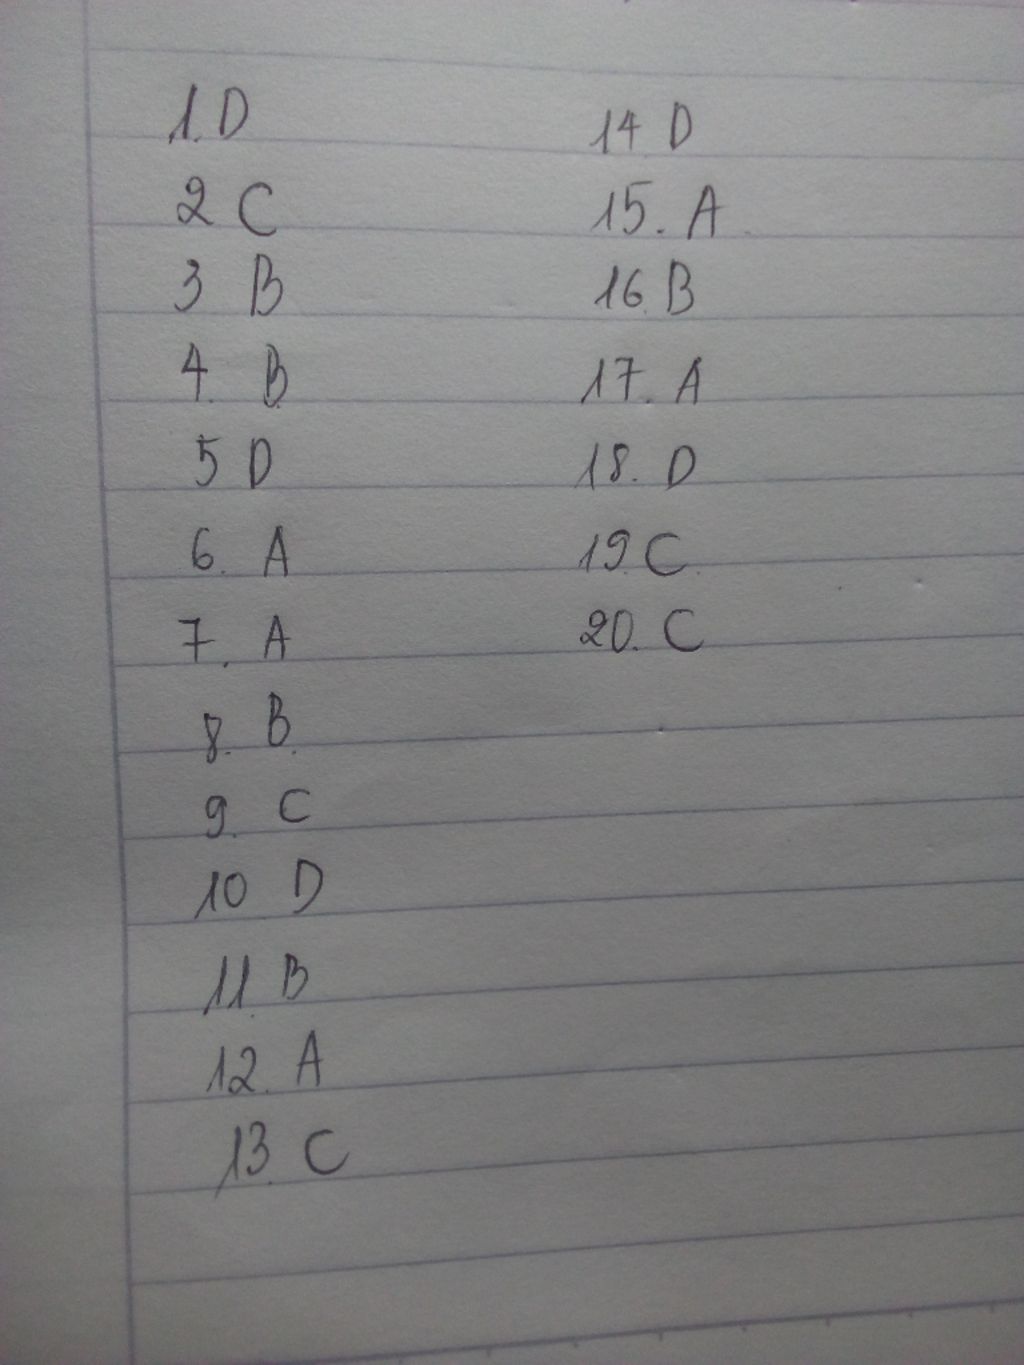 1. D
2 C
3 B
4. B
5 D
6. A
7. A
8. B
9. C
10 D
11. B
12. A
13. C
14 D
15. A
16. B
17. A
18. D
19. C
20. C